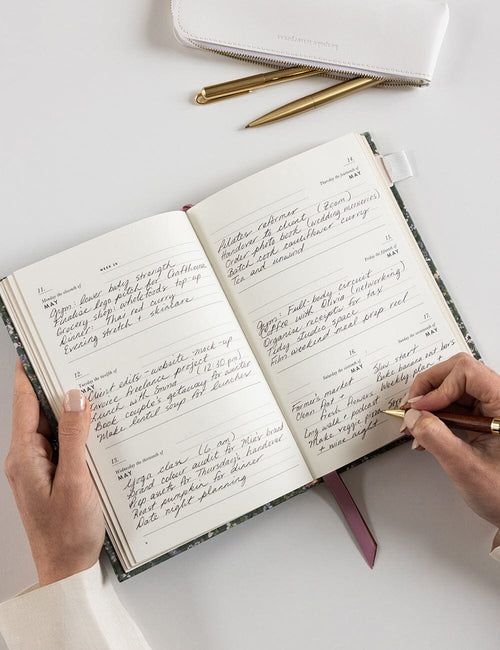 WEEK 20
11.
Monday the eleventh of
MAY
Gym: lower body strength
Finalise logo pitch for Crafthouse
Grocery shop: whole foods top-up
Dinner: Thai red curry
Evening stretch + skincare
12.
Tuesday the twelfth of
MAY
Client edits - website mock-up
Invoice freelance project
Lunch with Emma (12:30 pm)
Book couple's getaway for winter
Make lentil soup for lunches
13.
Wednesday the thirteenth of
MAY
Yoga class (6 am)
Brand colour audit for Mia's brand
Prep assets for Thursday's handover
Roast pumpkin for dinner
Date night planning
14.
Thursday the fourteenth of
MAY
Pilates reformer
Handover to client (Zoom)
Order photo book (wedding memories)
Batch cook cauliflower curry
Tea and unwind
15.
Friday the fifteenth of
MAY
Gym: Full-body circuit
Coffee with Olivia (networking)
Organise receipts for tax
Tidy studio space
Film weekend meal prep reel
16.
Saturday the sixteenth of
MAY
Farmer's market
Clean flat +
fresh flowers
Long walk + podcast
Make veggie pizza
+ wine night
17.
Sunday the seventeenth of
MAY
Slow start
Bake banana oat bars
Weekly plan +